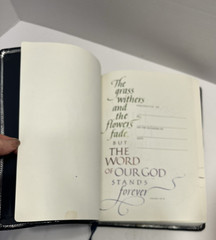 The
grass
withers
and
the
flowers
fade
BUT
THE
WORD
OF OUR GOD
STANDS
forever